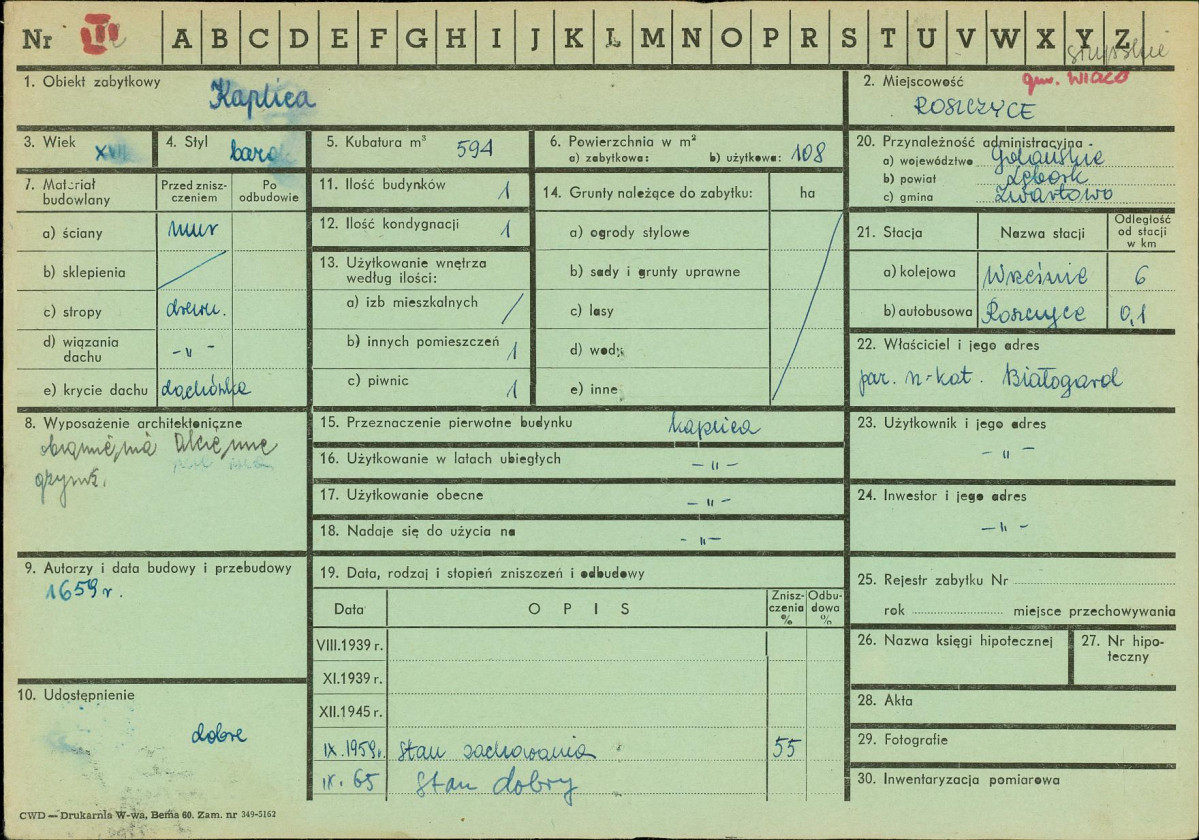 Nr III A B C D E F G H I J K L M N O P R S T U V W X Y Z
1. Obiekt zabytkowy
Kaplica
2. Miejscowość
gm. WICKO
ROSZCZYCE
3. Wiek XVII
4. Styl barok
5. Kubatura m³ 594
6. Powierzchnia w m²
a) zabytkowa: b) użytkowa: 108
20. Przynależność administracyjna -
a) województwo Gdańskie
b) powiat Lębork
c) gmina Zwartowo
7. Materiał budowlany
Przed zniszczeniem
Po odbudowie
a) ściany mur
b) sklepienia
c) stropy drewn.
d) wiązania dachu -„-
e) krycie dachu dachówka
11. Ilość budynków 1
12. Ilość kondygnacji 1
13. Użytkowanie wnętrza według ilości:
a) izb mieszkalnych /
b) innych pomieszczeń 1
c) piwnic 1
14. Grunty należące do zabytku: ha
a) ogrody stylowe
b) sady i grunty uprawne
c) lasy
d) wody
e) inne
21. Stacja
Nazwa stacji
Odległość od stacji w km
a) kolejowa Wrzeście 6
b) autobusowa Roszczyce 0,1
22. Właściciel i jego adres
par. rz-kat. Białogard
8. Wyposażenie architektoniczne
15. Przeznaczenie pierwotne budynku kaplica
16. Użytkowanie w latach ubiegłych -„-
17. Użytkowanie obecne -„-
18. Nadaje się do użycia na -„-
23. Użytkownik i jego adres
-„-
24. Inwestor i jego adres
-„-
9. Autorzy i data budowy i przebudowy
1659 r.
19. Data, rodzaj i stopień zniszczeń i odbudowy
Data
OPIS
Zniszczenia %
Odbudowa %
VIII.1939 r.
XI.1939 r.
XII.1945 r.
IX.1959r. Stan zachowania 55
IX. 65 Stan dobry
10. Udostępnienie
dobre
25. Rejestr zabytku Nr
rok miejsce przechowywania
26. Nazwa księgi hipotecznej
27. Nr hipoteczny
28. Akta
29. Fotografie
30. Inwentaryzacja pomiarowa
CWD — Drukarnia W-wa, Bema 60. Zam. nr 349-5162